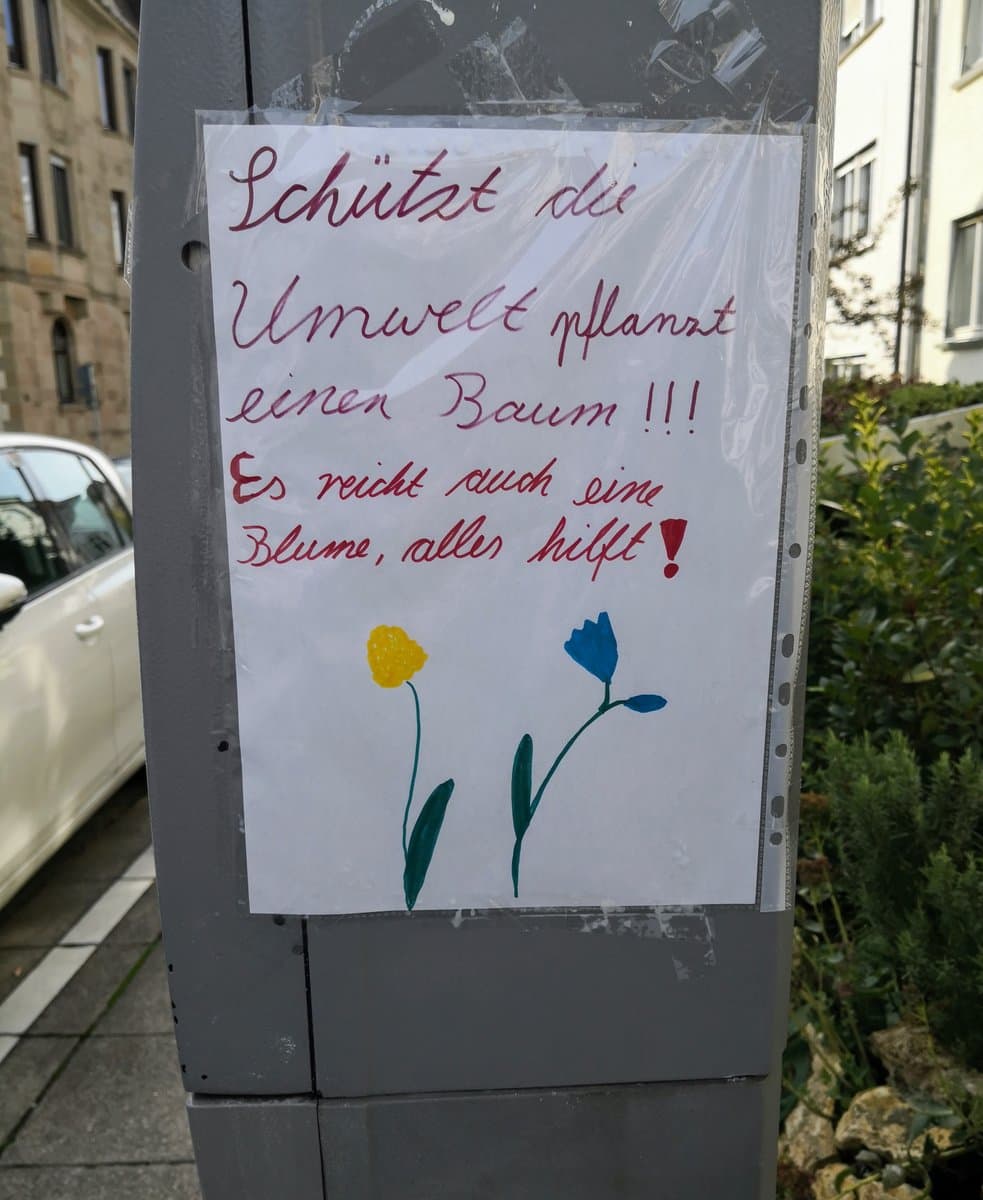 Schützt die
Umwelt pflanzt
einen Baum !!!
Es reicht auch eine
Blume, alles hilft!